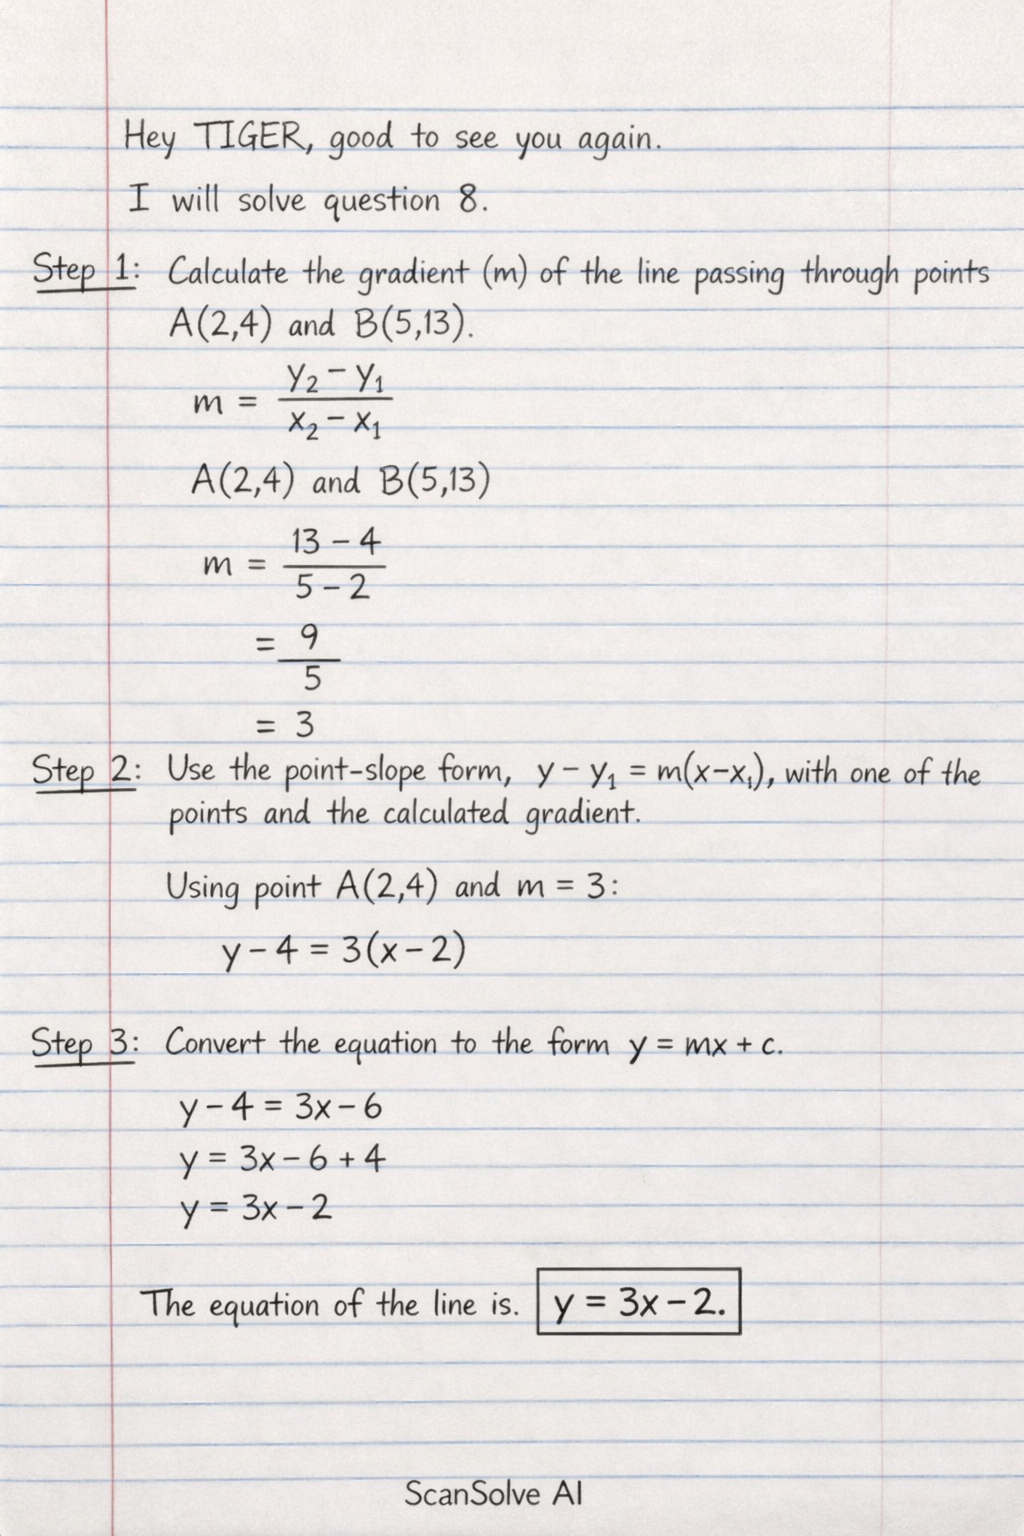 Hey TIGER, good to see you again.
I will solve question 8.
Step 1: Calculate the gradient (m) of the line passing through points
A(2,4) and B(5,13).
m = (y₂ - y₁)/(x₂ - x₁)
A(2,4) and B(5,13)
m = (13 - 4)/(5 - 2)
= 9/5
= 3
Step 2: Use the point-slope form, y - y₁ = m(x-x₁), with one of the
points and the calculated gradient.
Using point A(2,4) and m = 3:
y - 4 = 3(x - 2)
Step 3: Convert the equation to the form y = mx + c.
y - 4 = 3x - 6
y = 3x - 6 + 4
y = 3x - 2
The equation of the line is. y = 3x - 2.
ScanSolve AI